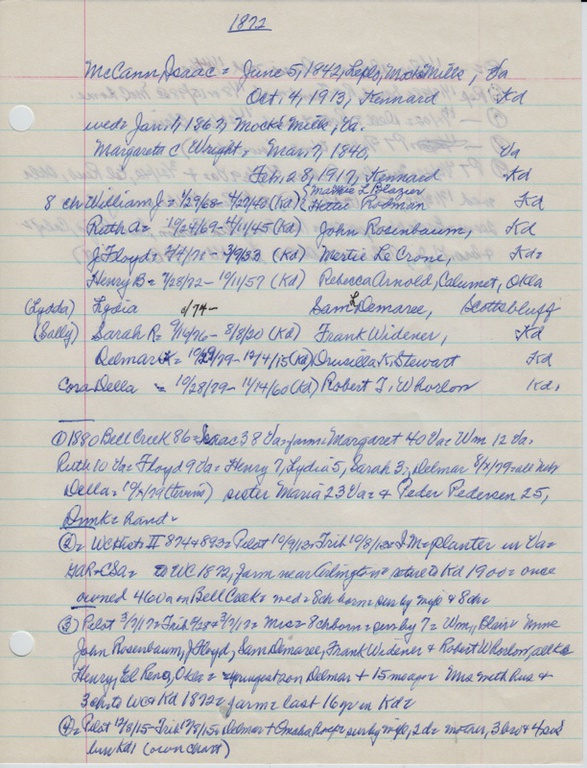 1872
McCann, Isaac = June 5, 1842, Mocks Mills, Va
Oct, 4, 1913, Kennard Kd
wed = Jan, 1, 1867, Mocks Mills, Va.
Margaret C (Wright, Mar, 7, 1840, Va
Feb, 28, 1917, Kennard Kd
8 ch = William J = 1/29/68 - 4/29/40 (Kd) { Mattie L Blazier
Hettie Rodman
Ruth A = 10/24/69 - 4/11/45 (Kd) John Rosenbaum, Kd
J Floyd = 2/4/71 - 3/9/33 (Kd) Mertie Le Crone, Kd=
Henry B = 7/28/72 - 10/11/57 (Kd) Rebecca Arnold, Calumet, Okla
(Lydda) Lydia c/74 - Sam L Demaree, Scottsbluff
(Sally) Sarah R = 9/19/76 - 8/8/20 (Kd) Frank Widener, Kd
Delmar = 10/29/79 - 12/4/15 (Kd) Drusilla K. Stewart Kd
Cora Della = 10/28/79 - 11/14/60 (Kd) Robert T. Whorlow Kd,
① 1880 Bell Creek 86 = Isaac 38 Va = farm = Margaret 40 Va = Wm 12 Va,
Ruth 10 Va = Floyd 9 Va = Henry 7, Lydia 5, Sarah 3, Delmar 8/X/79 = all Neb
Della = 10/X/79 (twins) sister Maria 23 Va = & Peder Pedersen 25,
Dnmk = hand =
② = WC Hist II 874 & 893 = Pilot 10/9/13 = Trib 10/8/13 = I M = planter in Va =
GAR = CSA = to WC 1872, farm near Arlington = retire to Kd 1900 = once
owned 460 a on Bell Creek = wed = 8 ch born = sur by wife & 8 ch =
③ Pilot 3/7/17 = Trib 2/28 & 3/7/17 = Mrs = 8 ch born = sur by 7 = Wm, Blair =
John Rosenbaum, J Floyd, Sam Demaree, Frank Widener & Robert Whorlow, all Kd
Henry, El Reno, Okla = youngest son Delmar + 15 mos ago = Mrs meth Rus &
3 ch to WC & Kd 1872 = farm = last 16 yr in Kd =
④ = Pilot 12/8/15 - Trib 12/8/15 = Delmar + Omaha sur by wife, 2 d = mother, 3 bro & 4 sis
bur Kd 1 (own chart)